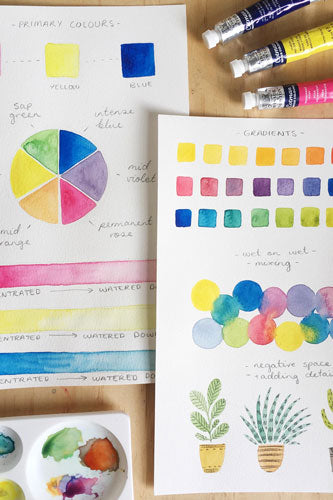 - PRIMARY COLOURS -
YELLOW
BLUE
sap
green
intense
blue
mid
violet
permanent
rose
mid
orange
ENTRATED → WATERED DOW
ENTRATED → WATERED DOW
ENTRATED → WATERED DOW
- GRADIENTS -
- wet on wet -
- mixing -
- negative space
+ adding detail